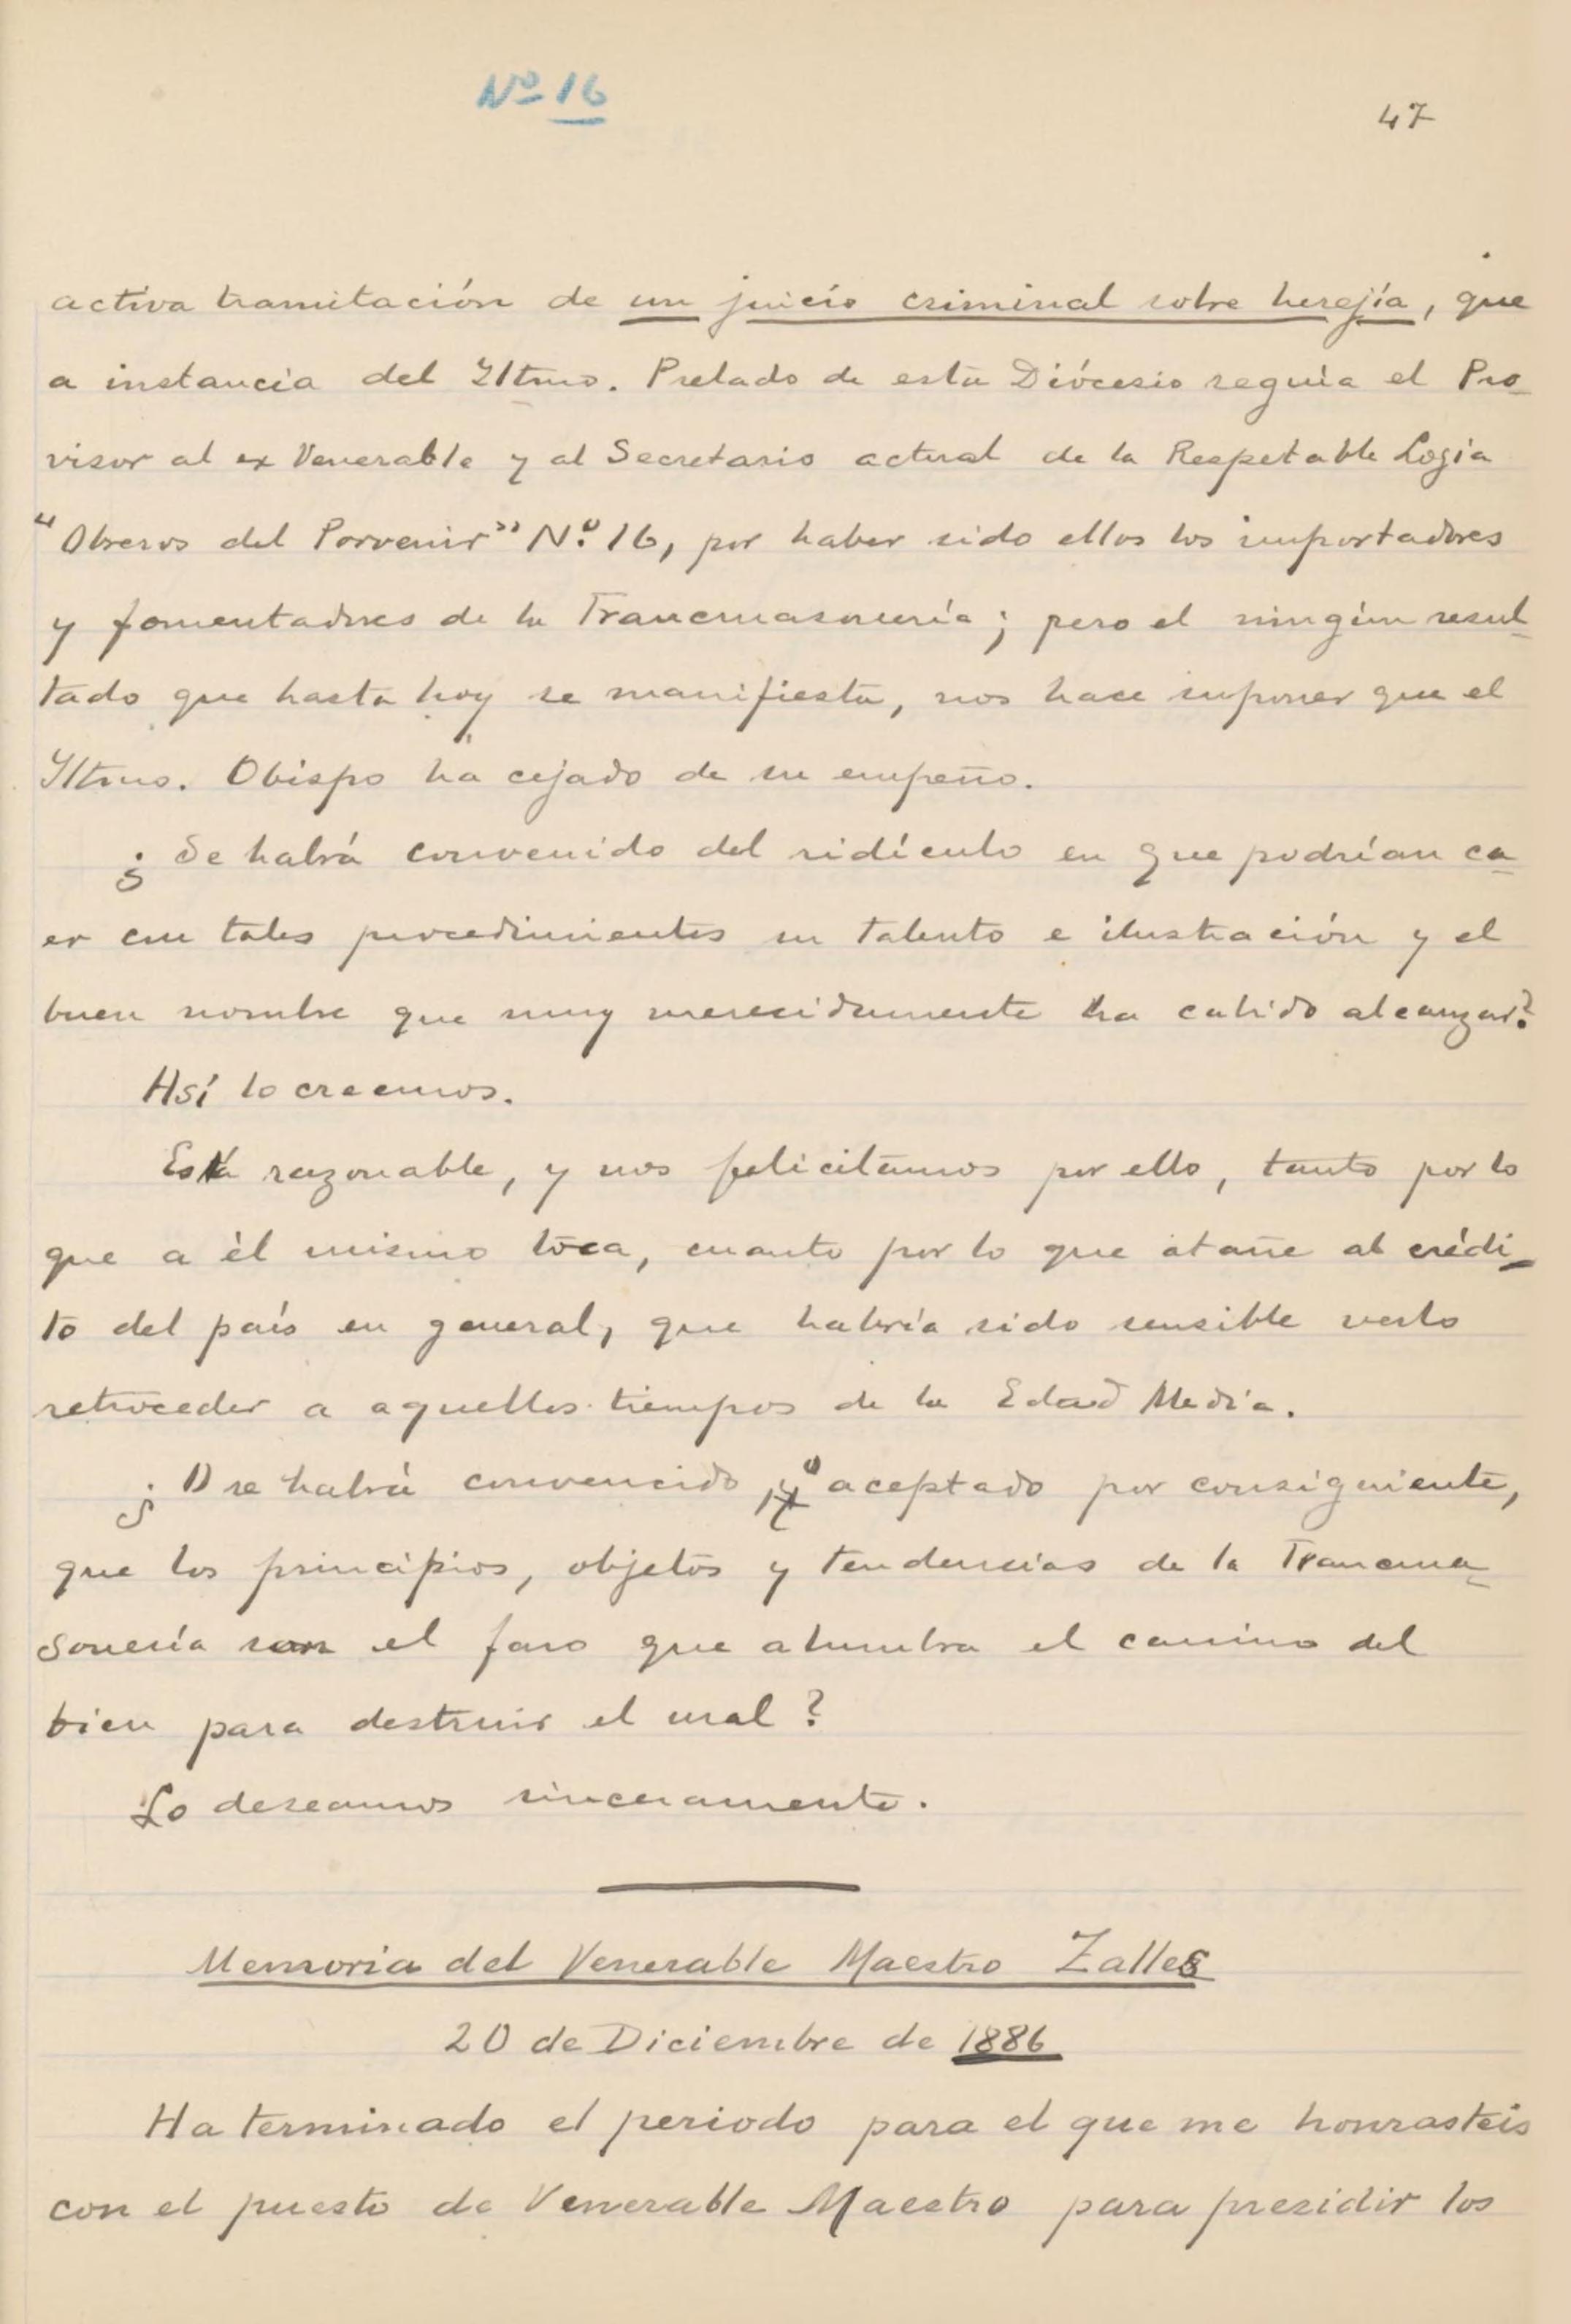 Nº 16
47
activa tramitación de un juicio criminal sobre herejía, que
a instancia del Iltmo. Prelado de esta Diócesis seguía el Pro-
visor al ex Venerable y al Secretario actual de la Respetable Logia
"Obreros del Porvenir" Nº 16, por haber sido ellos los importadores
y fomentadores de la Francmasonería; pero el ningún resul-
tado que hasta hoy se manifiesta, nos hace suponer que el
Iltmo. Obispo ha cejado de su empeño.
¿Se habrá convenido del ridículo en que podrían ca-
er con tales procedimientos su talento e ilustración y el
buen nombre que muy merecidamente ha cabido alcanzar?
Así lo creemos.
Está razonable, y nos felicitamos por ello, tanto por lo
que a él mismo toca, cuanto por lo que atañe al crédi-
to del país en general, que habría sido sensible verlo
retroceder a aquellos tiempos de la Edad Media.
¿O se habrá convencido, y aceptado por consiguiente,
que los principios, objetos y tendencias de la Francma-
sonería son el faro que alumbra el camino del
bien para destruir el mal?
Lo deseamos sinceramente.
Memoria del Venerable Maestro Zalles
20 de Diciembre de 1886
Ha terminado el periodo para el que me honrasteis
con el puesto de Venerable Maestro para presidir los